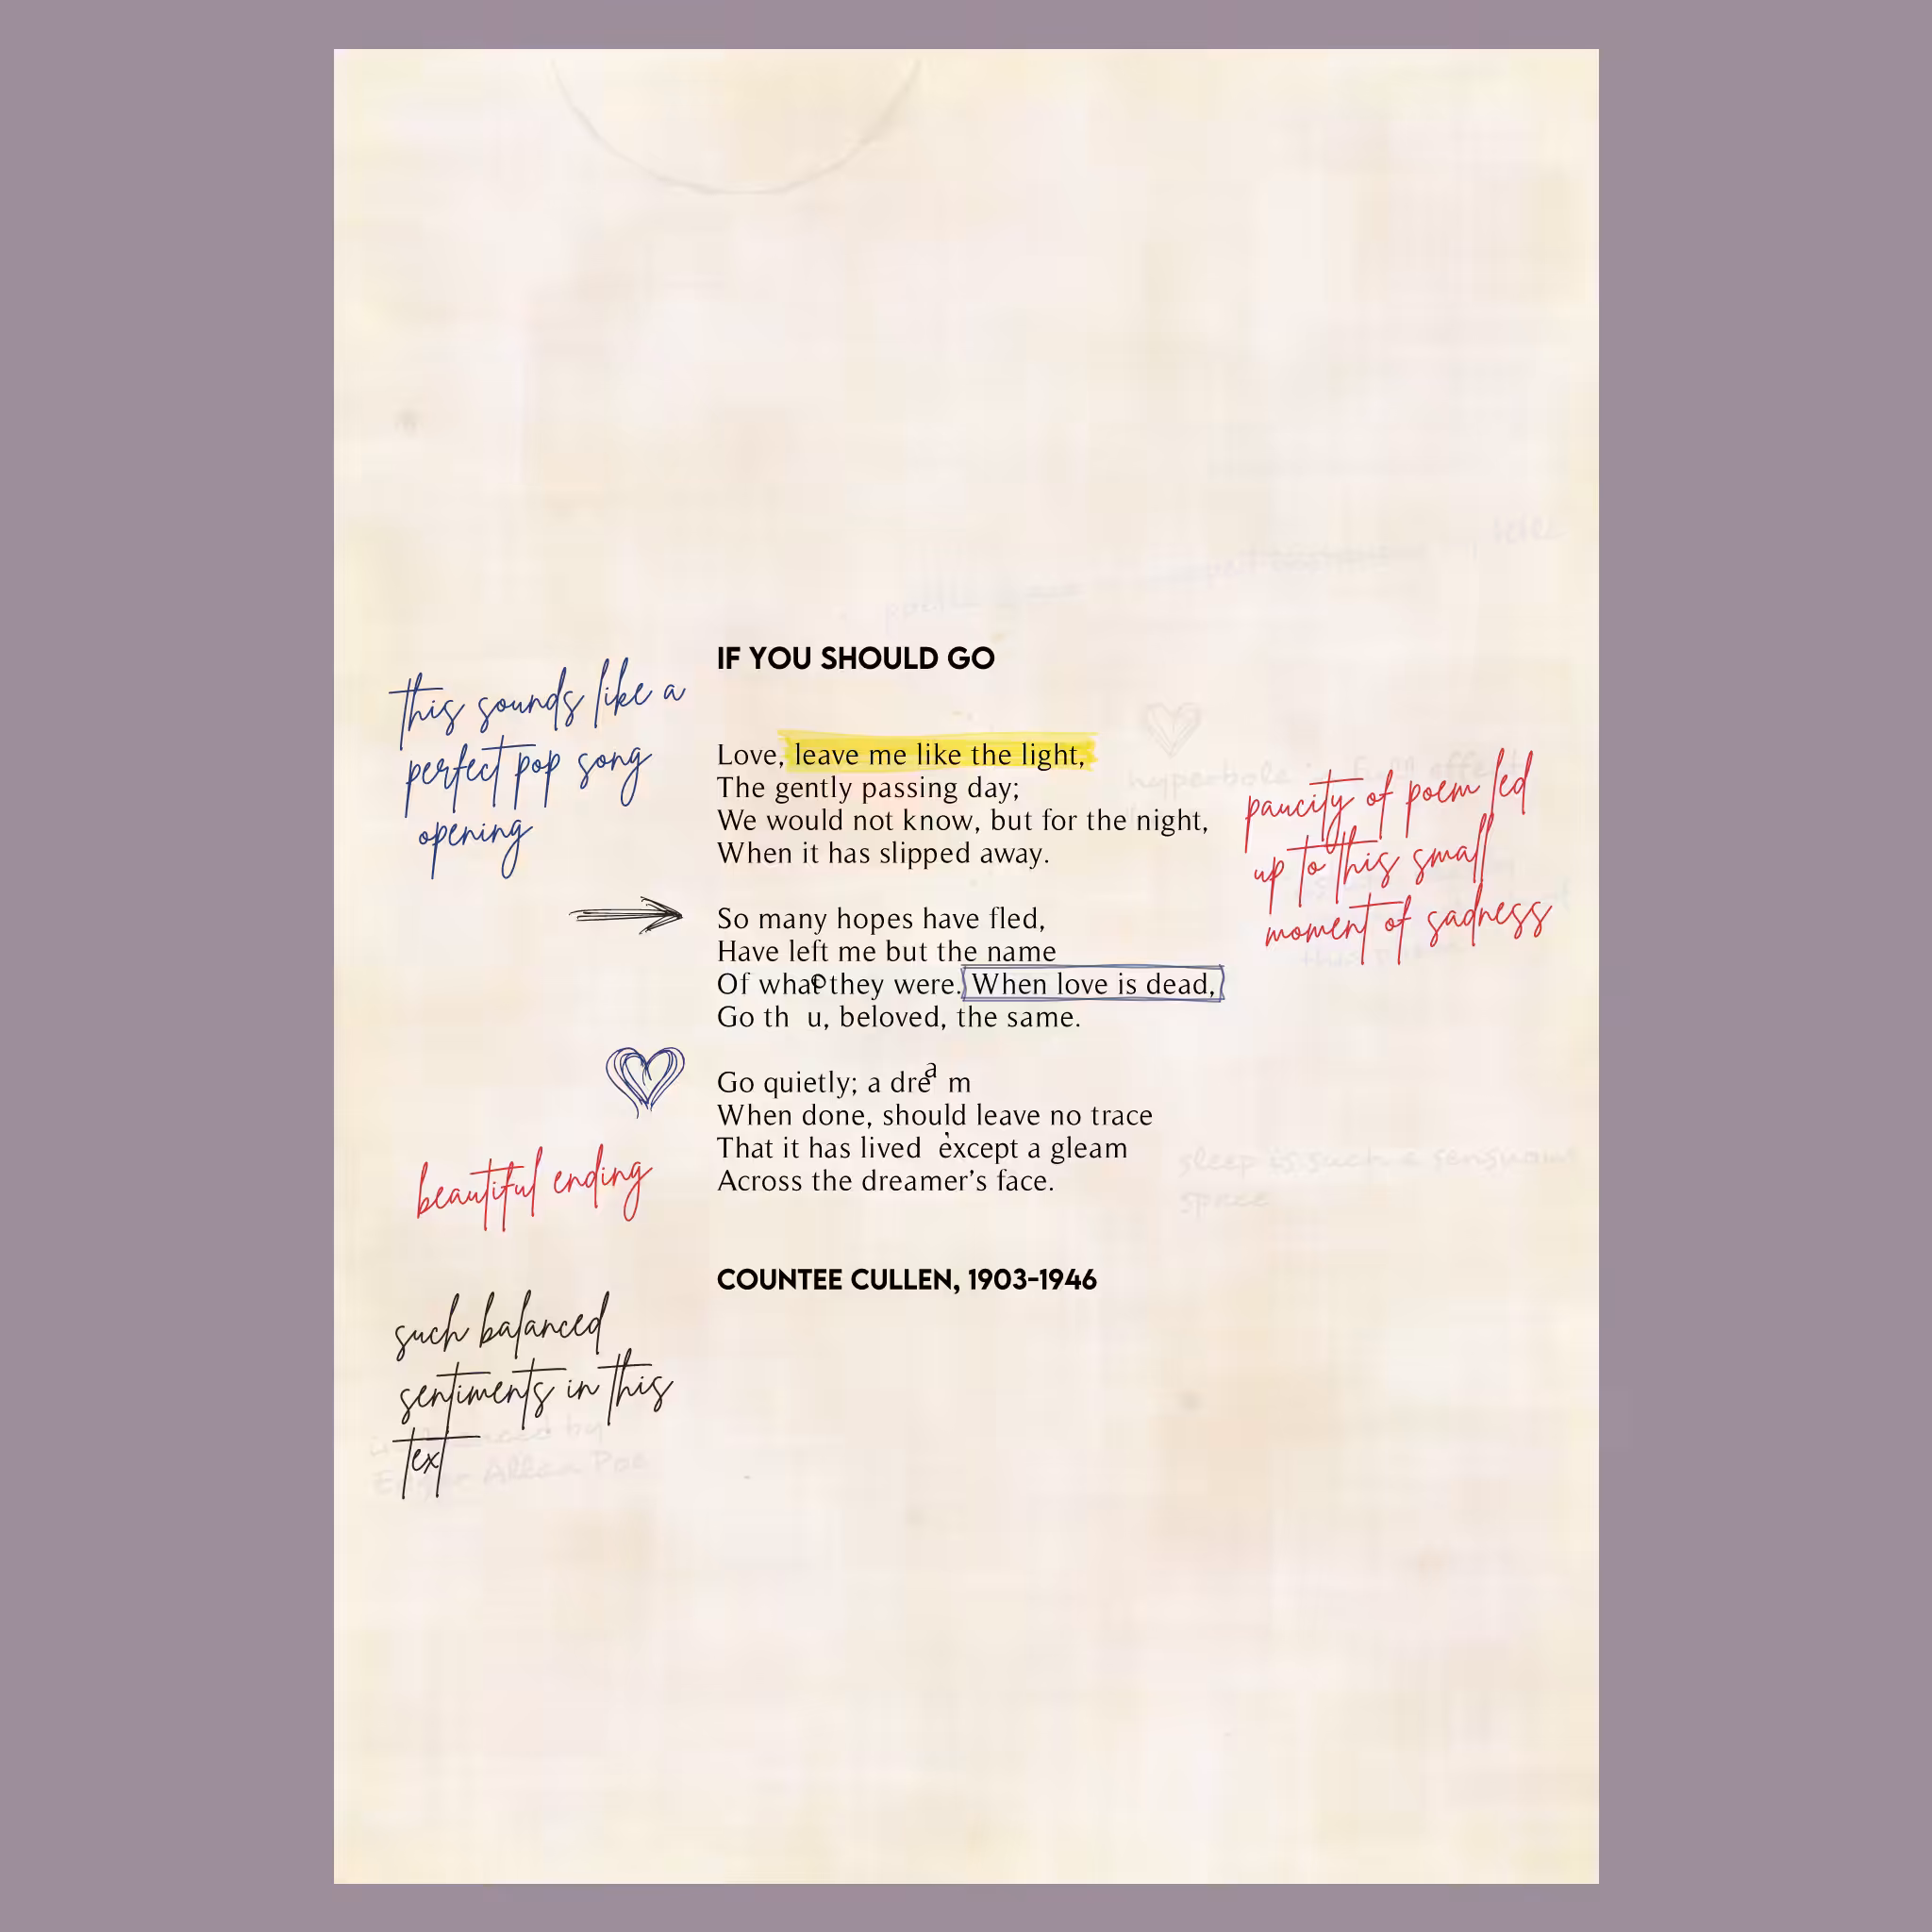 IF YOU SHOULD GO
this sounds like a
perfect pop song
opening
Love, leave me like the light,
The gently passing day;
We would not know, but for the night,
When it has slipped away.
paucity of poem led
up to this small
moment of sadness
So many hopes have fled,
Have left me but the name
Of what they were. When love is dead,
Go thou, beloved, the same.
Go quietly; a dream
When done, should leave no trace
That it has lived, except a gleam
Across the dreamer's face.
beautiful ending
COUNTEE CULLEN, 1903-1946
such balanced
sentiments in this
text
hyperbole in full effect
sleep is such a sensuous
space
by
Edgar Allan Poe